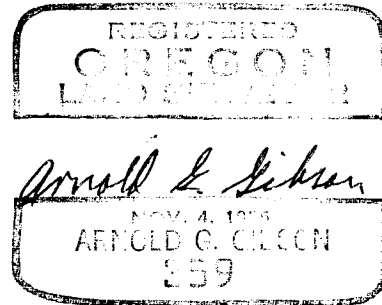 REGISTERED
OREGON
LAND SURVEYOR
Arnold G. Gibson
NOV. 4,
ARNOLD G. GIBSON
559